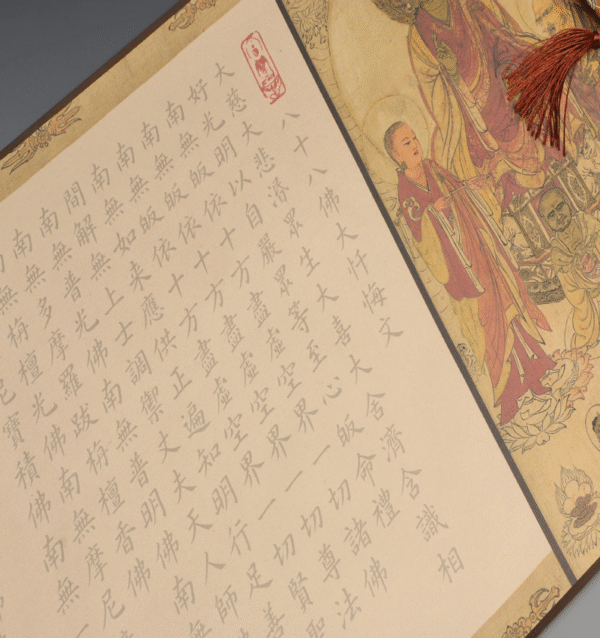 八十八佛大忏悔文
大慈大悲愍眾生大喜大舍濟含識相
好光明以自嚴眾等至心皈命禮
南無皈依十方盡虛空界一切諸佛
南無皈依十方盡虛空界一切尊法
南無皈依十方盡虛空界一切賢聖
南無如來應供正遍知明行足善
間解無上士調禦丈夫天人師
南無普光佛南無普明佛南無
南無多摩羅跋栴檀香佛
無栴檀光佛南無摩尼
尼寶積佛南無一